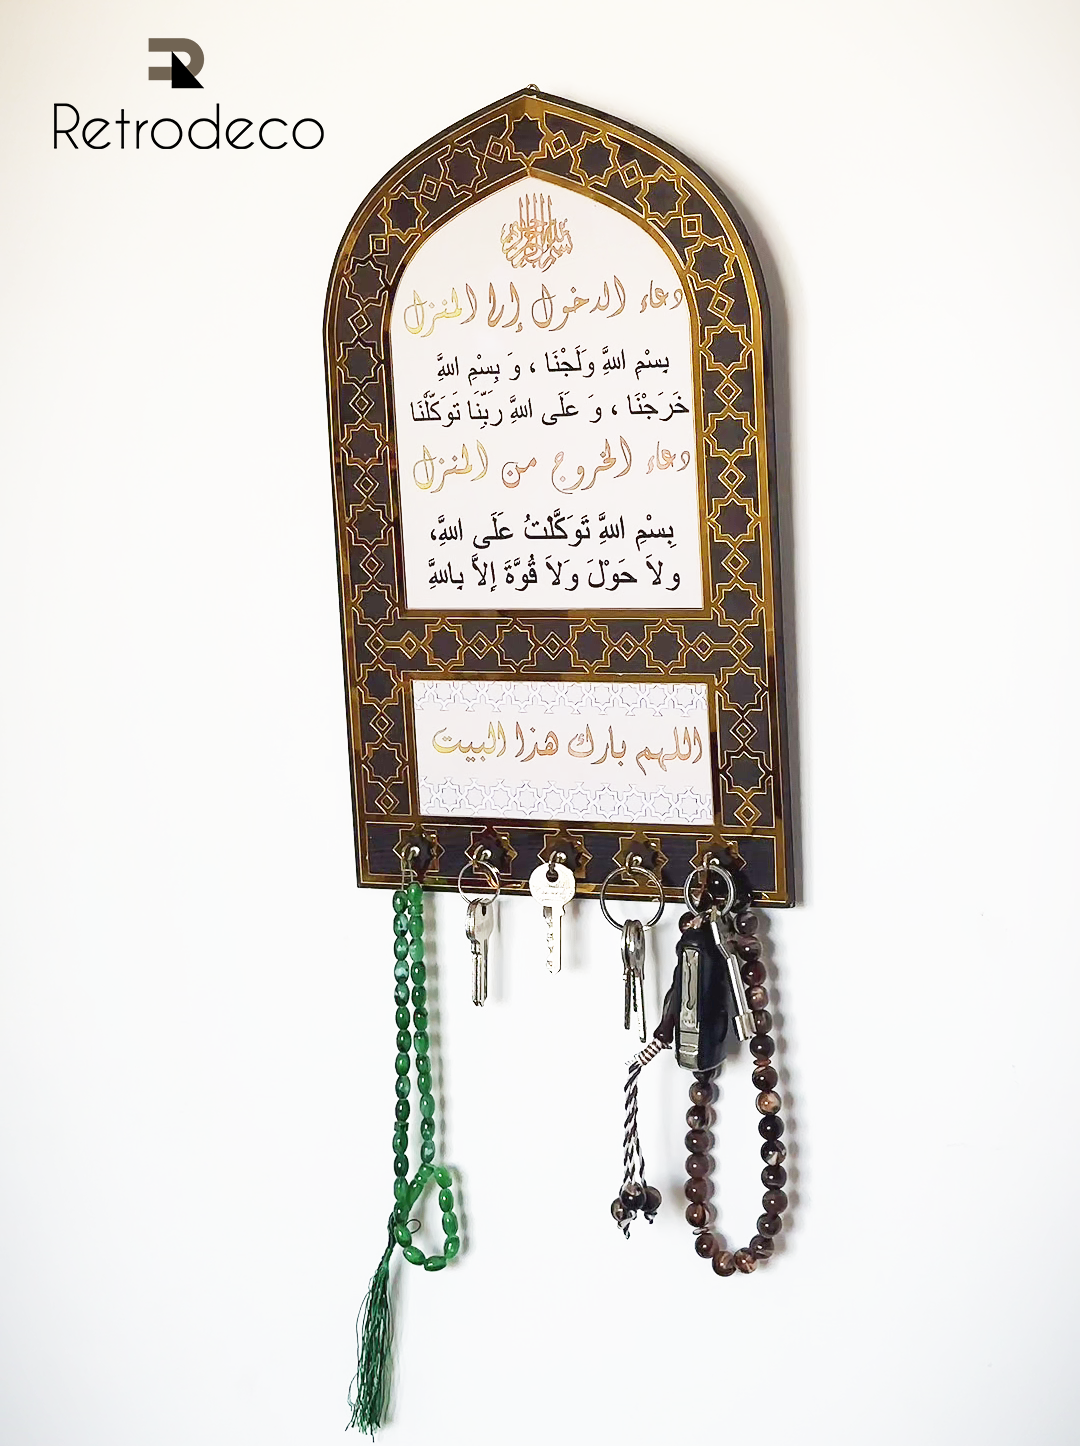 Retrodeco
بسم الله الرحمن الرحيم
دعاء الدخول إلى المنزل
بِسْمِ اللهِ وَلَجْنَا ، وَ بِسْمِ اللهِ
خَرَجْنَا ، وَ عَلَى اللهِ رَبِّنَا تَوَكَّلْنَا
دعاء الخروج من المنزل
بِسْمِ اللهِ تَوَكَّلْتُ عَلَى اللهِ،
ولاَ حَوْلَ وَلاَ قُوَّةَ إلاَّ بِاللهِ
اللهم بارك هذا البيت